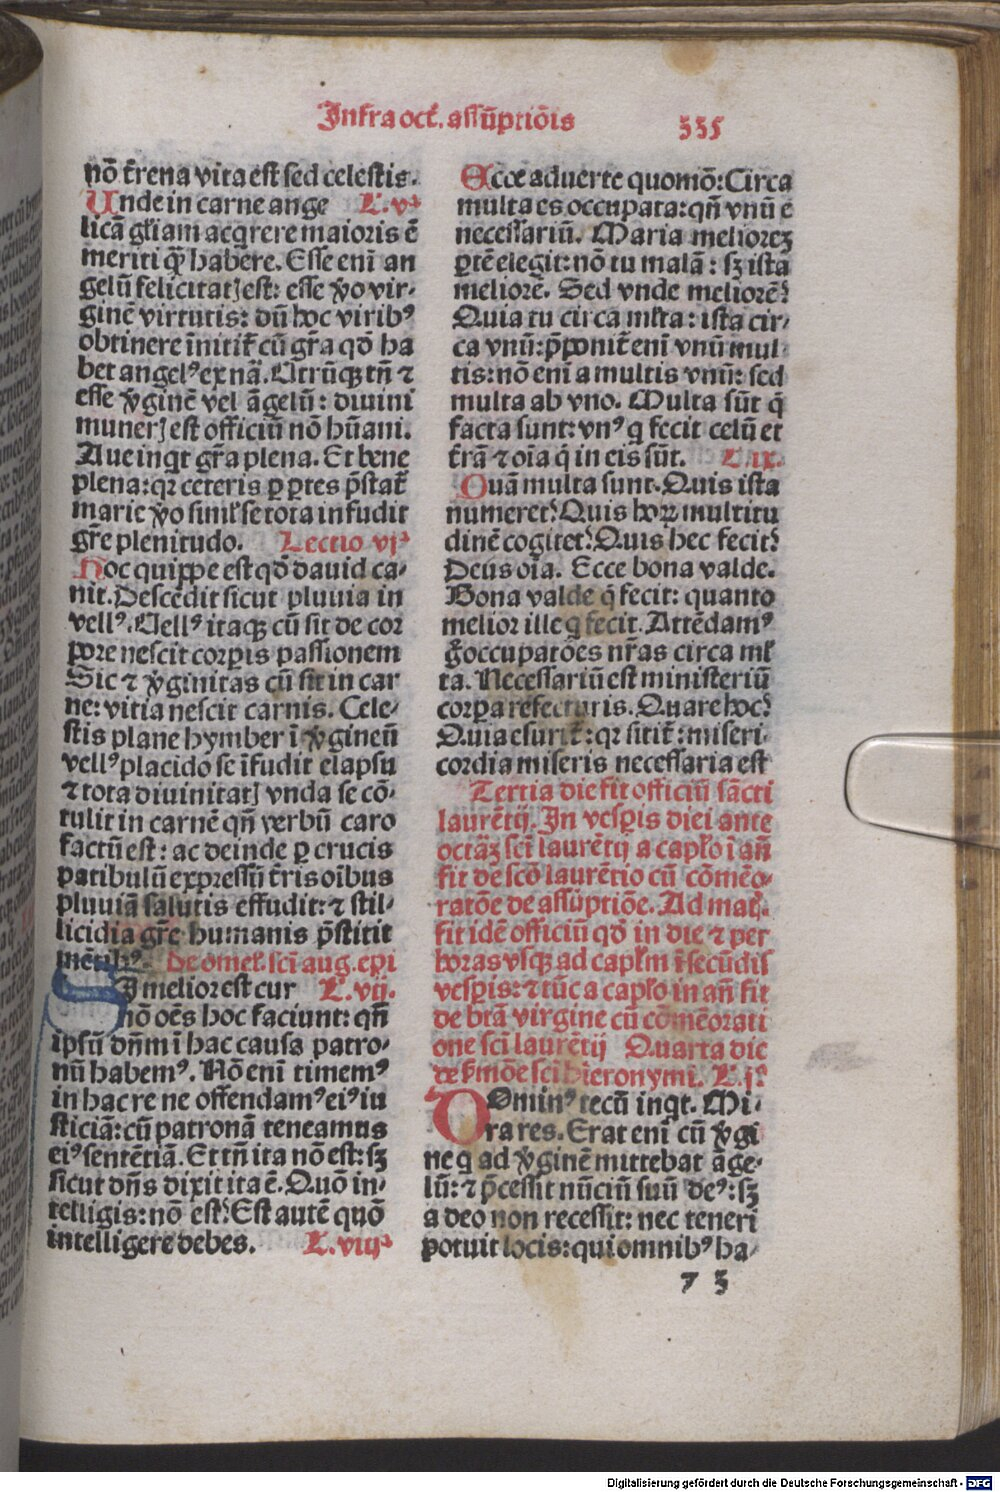 Infra oct̄. assūptiōis 335
nō t̄rena vita est sed celestis.
Unde in carne ange L. vꝰ
licā gl̄iam acq̄rere maioris ē
meriti qͣꝫ habere. Esse eni̅ an
gelū felicitatꝭ est: esse v̄o vir-
ginē virtutis: dū hoc viribꝰ
obtinere īnitit̄ cū gr̄a qd̄ ha
bet angelꝰ ex nā. Utrūqꝫ tn̄ ⁊
esse v̄ginē vel āgelū: diuini
munerꝭ est officiū nō hūani.
Aue inqͥt gr̄a plena. Et bene
plena: qꝛ ceteris ꝑ ꝑtes p̄stat̄
marie v̄o simĺ se tota infudit
gr̄e plenitudo. Lectio vjᵃ
Hoc quippe est qd̄ dauid ca-
nit. Descēdit sicut pluuia in
vellꝰ. Uellꝰ itaqꝫ cū sit de cor
pore nescit corꝑis passionem
Sic ⁊ v̄ginitas cū sit in car
ne: vitia nescit carnis. Cele-
stis plane hymber ī v̄gineū
vellꝰ placido se īfudit elapsu
⁊ tota diuinitatꝭ vnda se cō-
tulit in carnē qn̄ verbū caro
factū est: ac deinde ꝑ crucis
patibulū expressū t̄ris oībus
pluuiā salutis effudit: ⁊ stil-
licidia gr̄e humanis p̄stitit
mētibꝰ. De omeĺ. sci̅ aug. epi
Si melior est cur L. vij.
nō oēs hoc faciunt: qn̄
ipsū dn̄m ī hac causa patro-
nū habemꝰ. Nō eni̅ timemꝰ
in hac re ne offendamꝰ eiꝰ iu
sticiā: cū patronā teneamus
eiꝰ sentētiā. Et tn̄ ita nō est: sꝫ
sicut dn̄s dixit ita ē. Quō in-
telligis: nō est? Est autē quō
intelligere debes. L. viijᵃ
Ecce aduerte quomō: Circa
multa es occupata: qn̄ vnū ē
necessariū. Maria melioreꝫ
ꝑtē elegit: nō tu malā: sꝫ ista
meliorē. Sed vnde meliorē?
Quia tu circa mĺta: ista cir-
ca vnū: p̄ponit̄ eni̅ vnū mul-
tis: nō eni̅ a multis vnū: sed
multa ab vno. Multa sūt q̄
facta sunt: vnꝰ q̇ fecit celū et
t̄rā ⁊ oīa q̄ in eis sūt. L. ix.
Quā multa sunt. Quis ista
numeret? Quis hoꝝ multitu
dinē cogitet? Quis hec fecit?
Deus oīa. Ecce bona valde.
Bona valde q̄ fecit: quanto
melior ille q̇ fecit. Attēdamꝰ
g̊ occupatōes nr̄as circa mĺ
ta. Necessariū est ministeriū
corꝑa refecturis. Quare hoc?
Quia esurit̄: qꝛ sitit̄: miseri
cordia miseris necessaria est
Tertia die fit officiū sācti
laurētij. In vesꝑis diei ante
octāꝫ sci̅ laurētij a capĺo ī an̄
fit de scō laurētio cū cōmēo-
ratōe de assūptiōe. Ad mat̄.
fit idē officiū qd̄ in die ⁊ per
horas vsqꝫ ad capĺm ī secūdis
vesꝑis: ⁊ tūc a capĺo in an̄ fit
de btā virgine cū cōmēorati
one sci̅ laurētij Quarta die
de s̄mōe sci̅ hieronymi. L. jᵃ
Dominꝰ tecū inqͥt. Mi-
ra res. Erat eni̅ cū v̄gi
ne q̇ ad v̄ginē mittebat āge-
lū: ⁊ p̄cessit nūciū suū deꝰ: sꝫ
a deo non recessit: nec teneri
potuit locis: qui omnibꝰ ha-
7 3
Digitalisierung gefördert durch die Deutsche Forschungsgemeinschaft - DFG